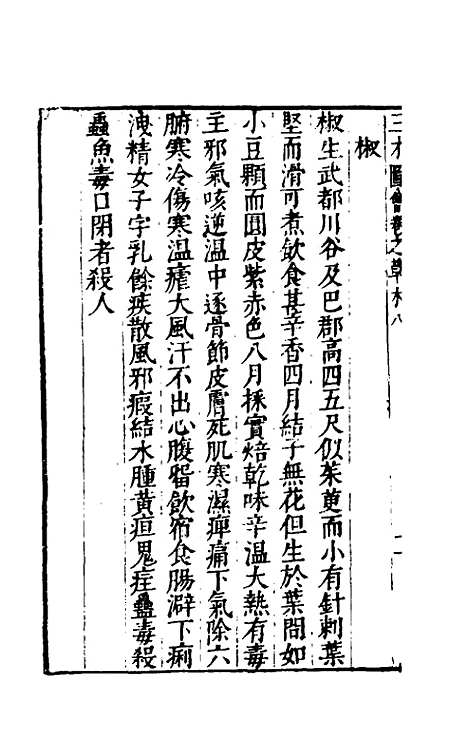 三才圖會卷之草木八
椒
椒生武都川谷及巴郡高四五尺似茱萸而小有針刺葉
堅而滑可煮飲食甚辛香四月結子無花但生於葉間如
小豆顆而圓皮紫赤色八月採實焙乾味辛溫大熱有毒
主邪氣咳逆溫中逐骨節皮膚死肌寒濕痺痛下氣除六
腑寒冷傷寒溫瘧大風汗不出心腹畱飲宿食腸澼下痢
洩精女子字乳餘疾散風邪瘕結水腫黃疸鬼疰蠱毒殺
蟲魚毒口閉者殺人